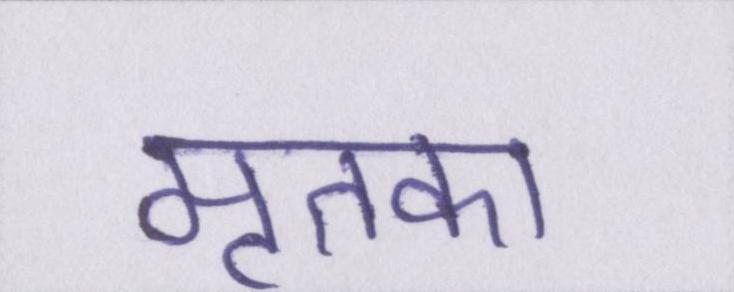 मृतका